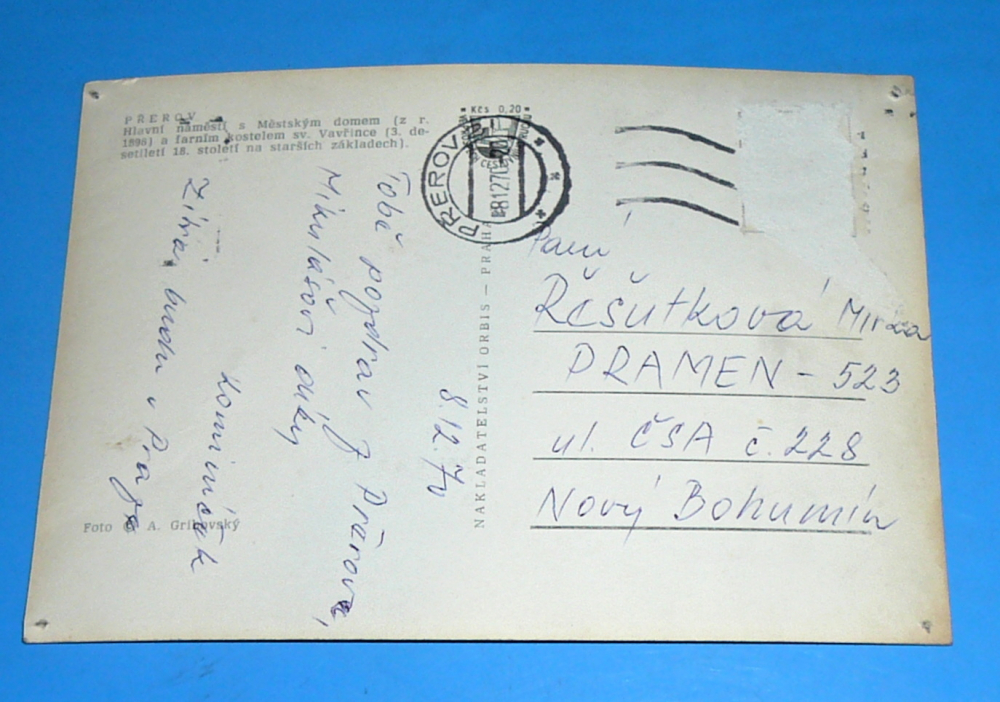 PŘEROV
Hlavní náměstí s Městským domem (z r.
1898) a farním kostelem sv. Vavřince (3. de-
setiletí 18. století na starších základech).
8.12.70
Tobě pozdrav z Přerova,
Mikulášovi díky
Kominíček
Zítra budu v Praze
Foto © A. Gribovský
NAKLADATELSTVÍ ORBIS — PRAHA
Kčs 0,20
PŘEROV
8.12.70
Paní
Řešutková
PRAMEN - 523
ul. ČSA č. 228
Nový Bohumín